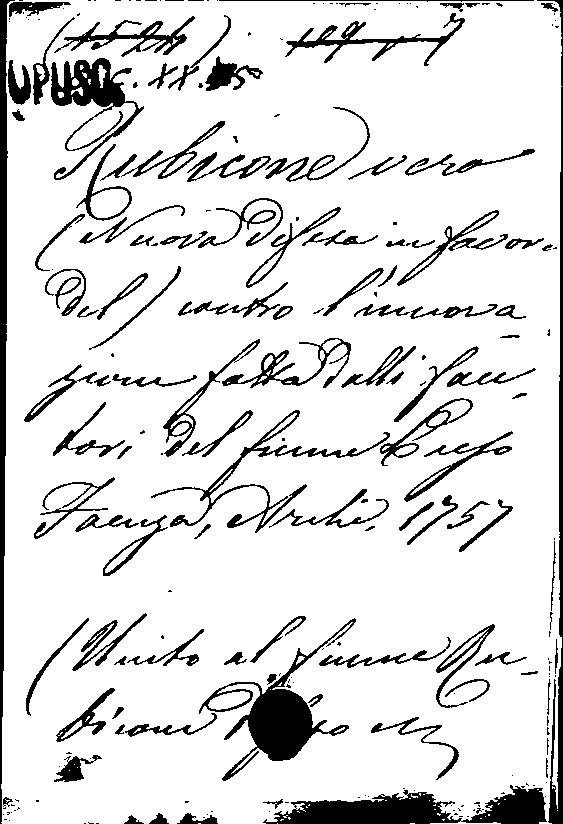 (1524). 109
C. XX. 5
Rubicone vero
(Nuova difesa in favore
del) contro l'innova
zione fatta dalli fau
tori del fiume
Faenza, Archi, 1757
(Unito al fiume Ru-
bicone